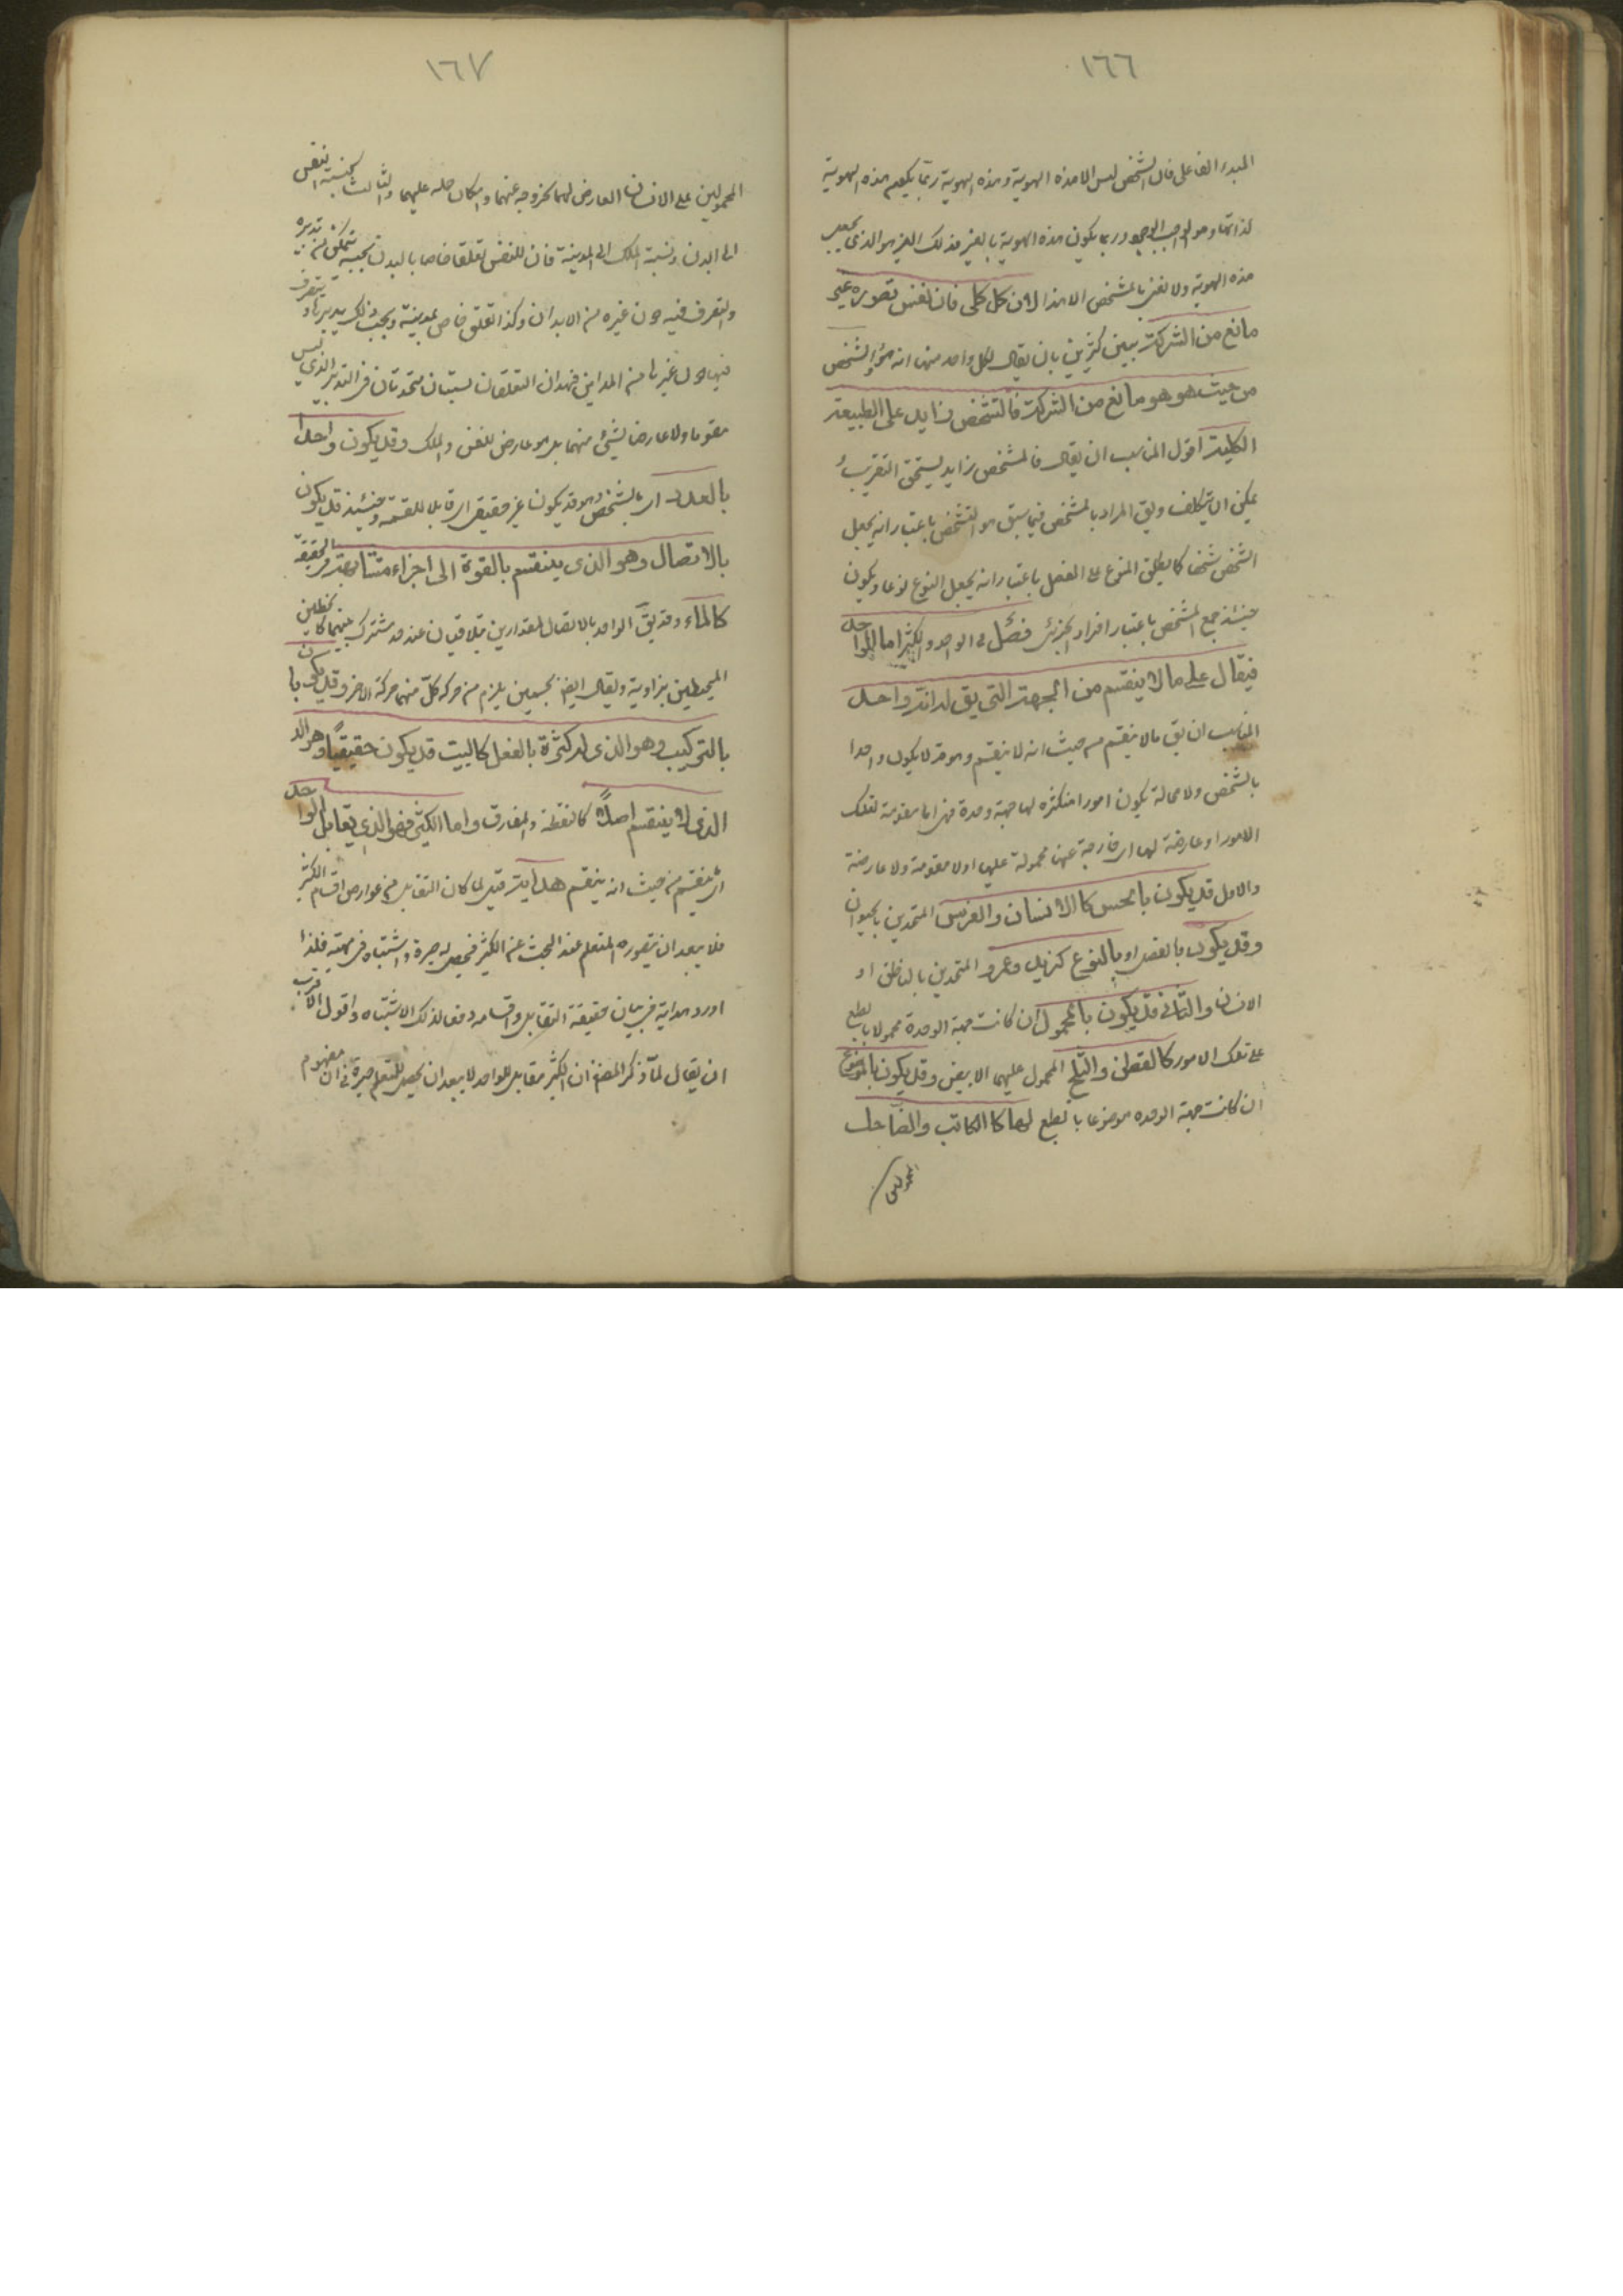 ١٦٦
المبدء الفاعلى فان الشخص ليس الا هذه الهوية وهذه الهوية ربما يكون هذه الهوية
لذاتها وهو الواجب الوجود وربما يكون هذه الهوية بالغير فذلك الغير هو الذى يجعل
هذه الهوية ولا نعنى بالمشخص الا هذا لان كل كلى فان نفس تصوره غير
مانع من الشركة بين كثيرين بان يقال لكل واحد منها انه هو والشخص
من حيث هو هو مانع من الشركة فالتشخص زايد على الطبيعة
الكلية اقول المناسب ان يقال فالمشخص زايد ليستحق التقريب و
يمكن ان يتكلف ويق المراد بالمشخص فيما سبق هو التشخص باعتبار انه يجعل
الشخص شخصا كما يطلق المنوع على الفصل باعتبار انه يجعل النوع نوعا ويكون
حينئذ جمع المشخص باعتبار افراد الجزئى فصل فى الواحد والكثير اما الواحد
فيقال على ما لا ينقسم من الجهة التى يق له انه واحد
المناسب ان يق ما لا ينقسم من حيث انه لا ينقسم وهو قد لا يكون واحدا
بالشخص ولا محالة يكون امورا متكثره لها جهة وحدة فهى اما مقومة لتلك
الامور او عارضة لها اى خارجة عنها محمولة عليها او لا مقومة ولا عارضة
والاول قد يكون بالجنس كالانسان والفرس المتحدين بالحيوان
وقد يكون بالفصل او بالنوع كزيد وعمرو المتحدين بالناطق او
الانسان والثانى قد يكون بالمحمول ان كانت جهة الوحدة محمولا بالطبع
على تلك الامور كالقطن والثلج المحمول عليهما الابيض وقد يكون بالموضوع
ان كانت جهة الوحده موضوعا بالطبع لهما كالكاتب والضاحك
المحمولين
١٦٧
المحمولين على الانسان العارض لهما لخروجه عنهما وامكان حمله عليهما والثالث كنسبة النفس
الى البدن ونسبة الملك الى المدينة فان للنفس تعلقا خاصا بالبدن بحسبه يتمكن من تدبيره
والتصرف فيه دون غيره من الابدان وكذا تعلق خاص بمدينة وبحسب ذلك يدبرها ويتصرف
فيها دون غيرها من المداين فهذان التعلقان نسبتان متحدتان فى التدبير الذى ليس
مقوما ولا عارضا لشئ منهما بل هو عارض للنفس والملك وقد يكون واحدا
بالعدد اى بالشخص وهو قد يكون غير حقيقى اى قابلا للقسمة وحينئذ قد يكون
بالاتصال وهو الذى ينقسم بالقوة الى اجزاء متشابهة فى الحقيقة
كالماء وقد يق الواحد بالاتصال لمقدارين يتلاقيان عند حد مشترك بينهما كالخطين
المحيطين بزاوية ويقال ايضا لجسمين يلزم من حركة كل منهما حركة الاخر وقد يكون با
بالتركيب وهو الذى له كثرة بالفعل كالبيت قد يكون حقيقيا وهو الذ
الذى لا ينقسم اصلا كالنقطة والمفارق واما الكثير فهو الذى يقابل الواحد
اى ينقسم من حيث انه ينقسم هداية قيل لما كان التقابل من عوارض اقسام الكثير
فلا يبعد ان يتصوره المتعلم عند البحث عن الكثير فيحصل له حيرة واشتباه فى مهيته فلذا
اورد هداية فى بيان حقيقة التقابل واقسامه دفعا لذلك الاشتباه واقول الاقرب
ان يقال لما ذكر المصنف ان الكثير مقابل للواحد لا يبعد ان يحصل للمتعلم حيرة فى ان مفهوم